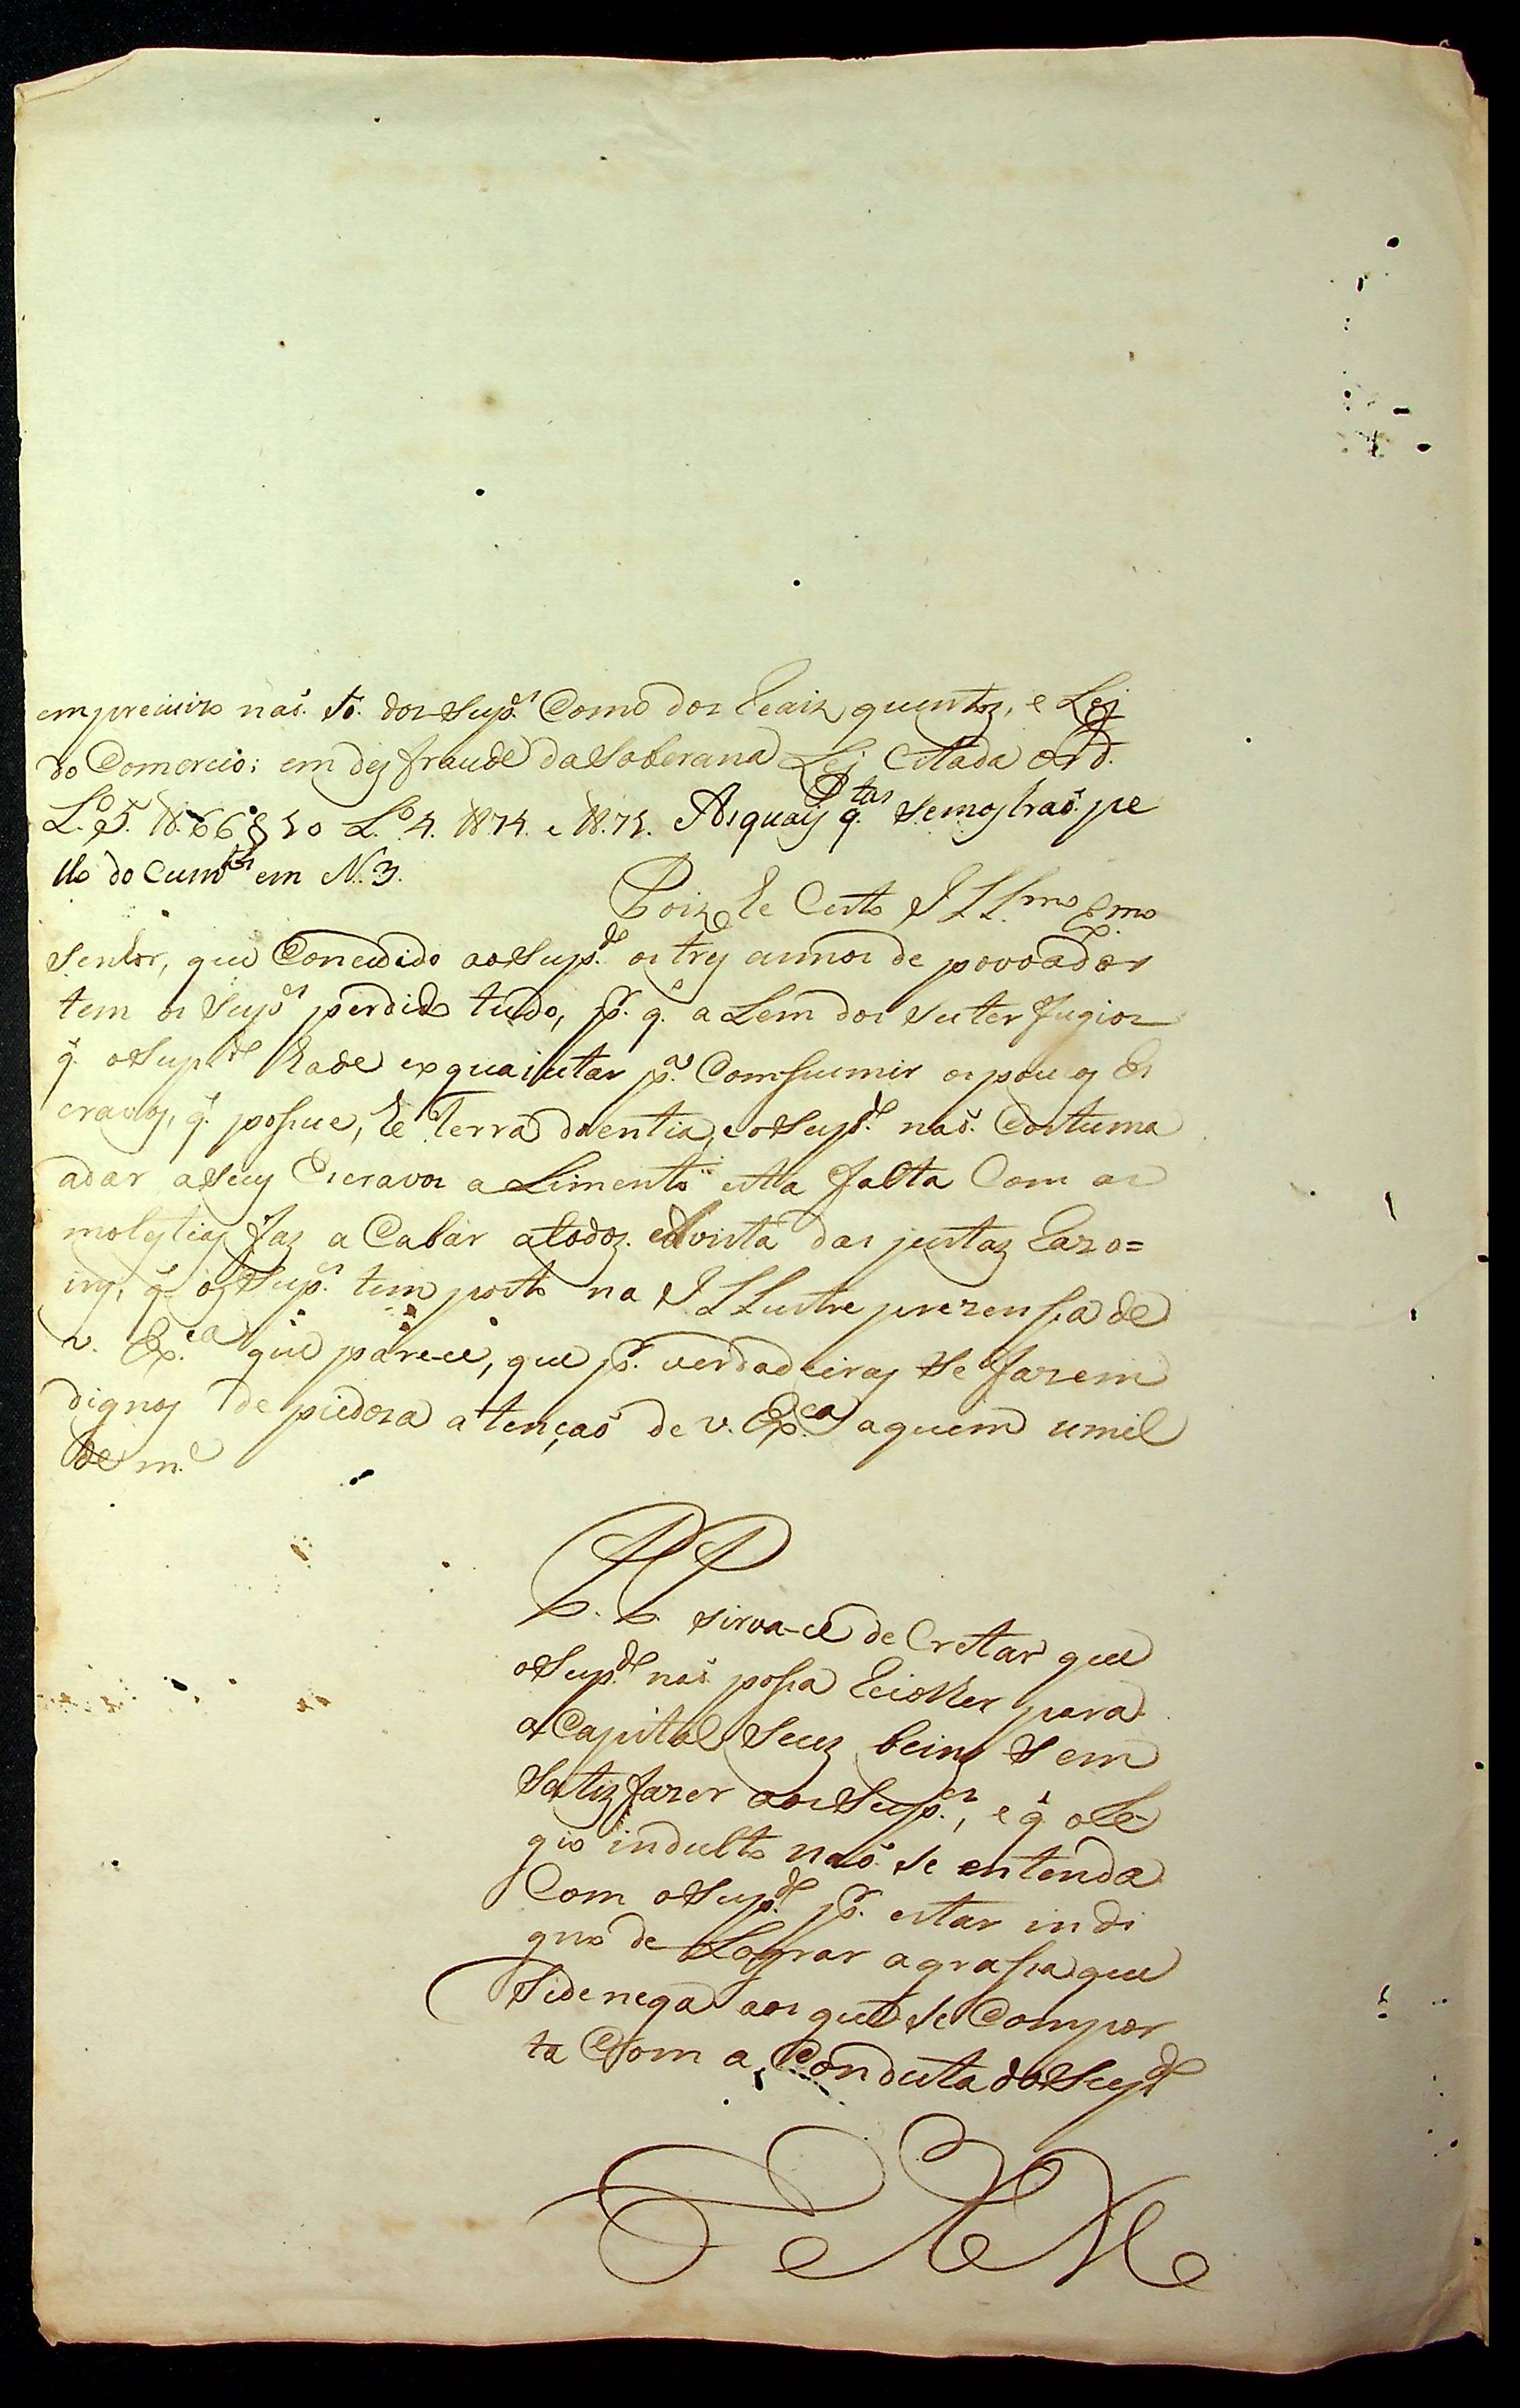 em prejuizo naõ. Só. dos Sup.es Como dos Reais quintos, e Lej
do Comercio; em desfraude da Soberana Lej Citada Ord.
L.o 5. tt. 66 § L.o 4. tt 74. e tt. 75. As quais q. tas Semostraõ. pe
llo documtos em N. 3.
Pois he Certo ILLmo Exmo
Senhor, que Concedido aoSup.do os tres annos de povoador
tem os Sup.es perdido tudo, pr. q.e aLem dos suterfugios
q.e oSupldo hade exquaiutar p.a Comsumir os poucos Es
cravos, q.e pohue, he Terra doentia, eoSup.do naõ. Costuma
adar aseus Escravos aLimento esta falta Com as
molestias faz aCabar atodos. eavista das justas Razo=
ins, q.e os Sup.es tem posto na ILLustre prezensia de
v. Ex.ca que parece, que pr. verdadeiras Se fazem
dignos de piedoza atençaõ de v. Ex.ca aquem umil
de m.e
PP
sirva-ce deCretar que
oSup.do naõ. posia Recolher para
a Capital Seus beins Sem
Satisfazer aosSup.es, e q.e oRe
gio indulto naõ. se entenda
Com oSup.do pr. estar indi
gno de Lograr agrasia que
Sidenega aos que se Compor
ta Com a Conduta doSup.do
E R M